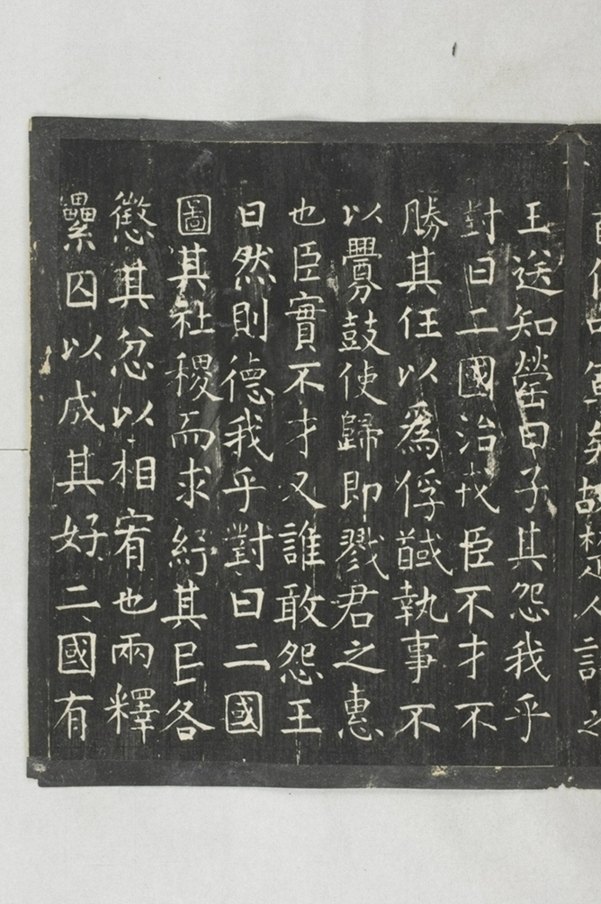 首佐中軍矣故楚人許之
王送知罃曰子其怨我乎
對曰二國治戎臣不才不
勝其任以爲俘馘執事不
以釁鼓使歸即戮君之惠
也臣實不才又誰敢怨王
曰然則德我乎對曰二國
圖其社稷而求紓其民各
懲其忿以相宥也兩釋
纍囚以成其好二國有